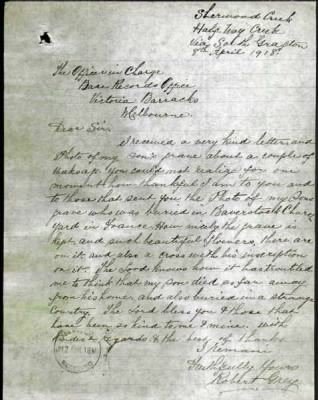 Sherwood Creek
Half Way Creek
via South Grafton
8th April 1918.
The Officer in Charge
Base Records Office
Victoria Barracks
Melbourne.
Dear Sir.
I received a very kind letter and
Photo of my son's grave about a couple of
weeks ago. You could not realize for one
moment how thankful I am to you and
to those that sent you the Photo of my Sons
grave who was buried in Church
yard in France. How nicely the grave is
kept and such beautiful flowers there are
on it, and also a cross with his inscription
on it. The Lord knows how it has troubled
me to think that my son died so far away
from his home, and also buried in a strange
Country. The Lord bless you & those that
have been so kind to me & mine. With
kindest regards & the best of thanks
I Remain
Faithfully Yours
Robert Grey